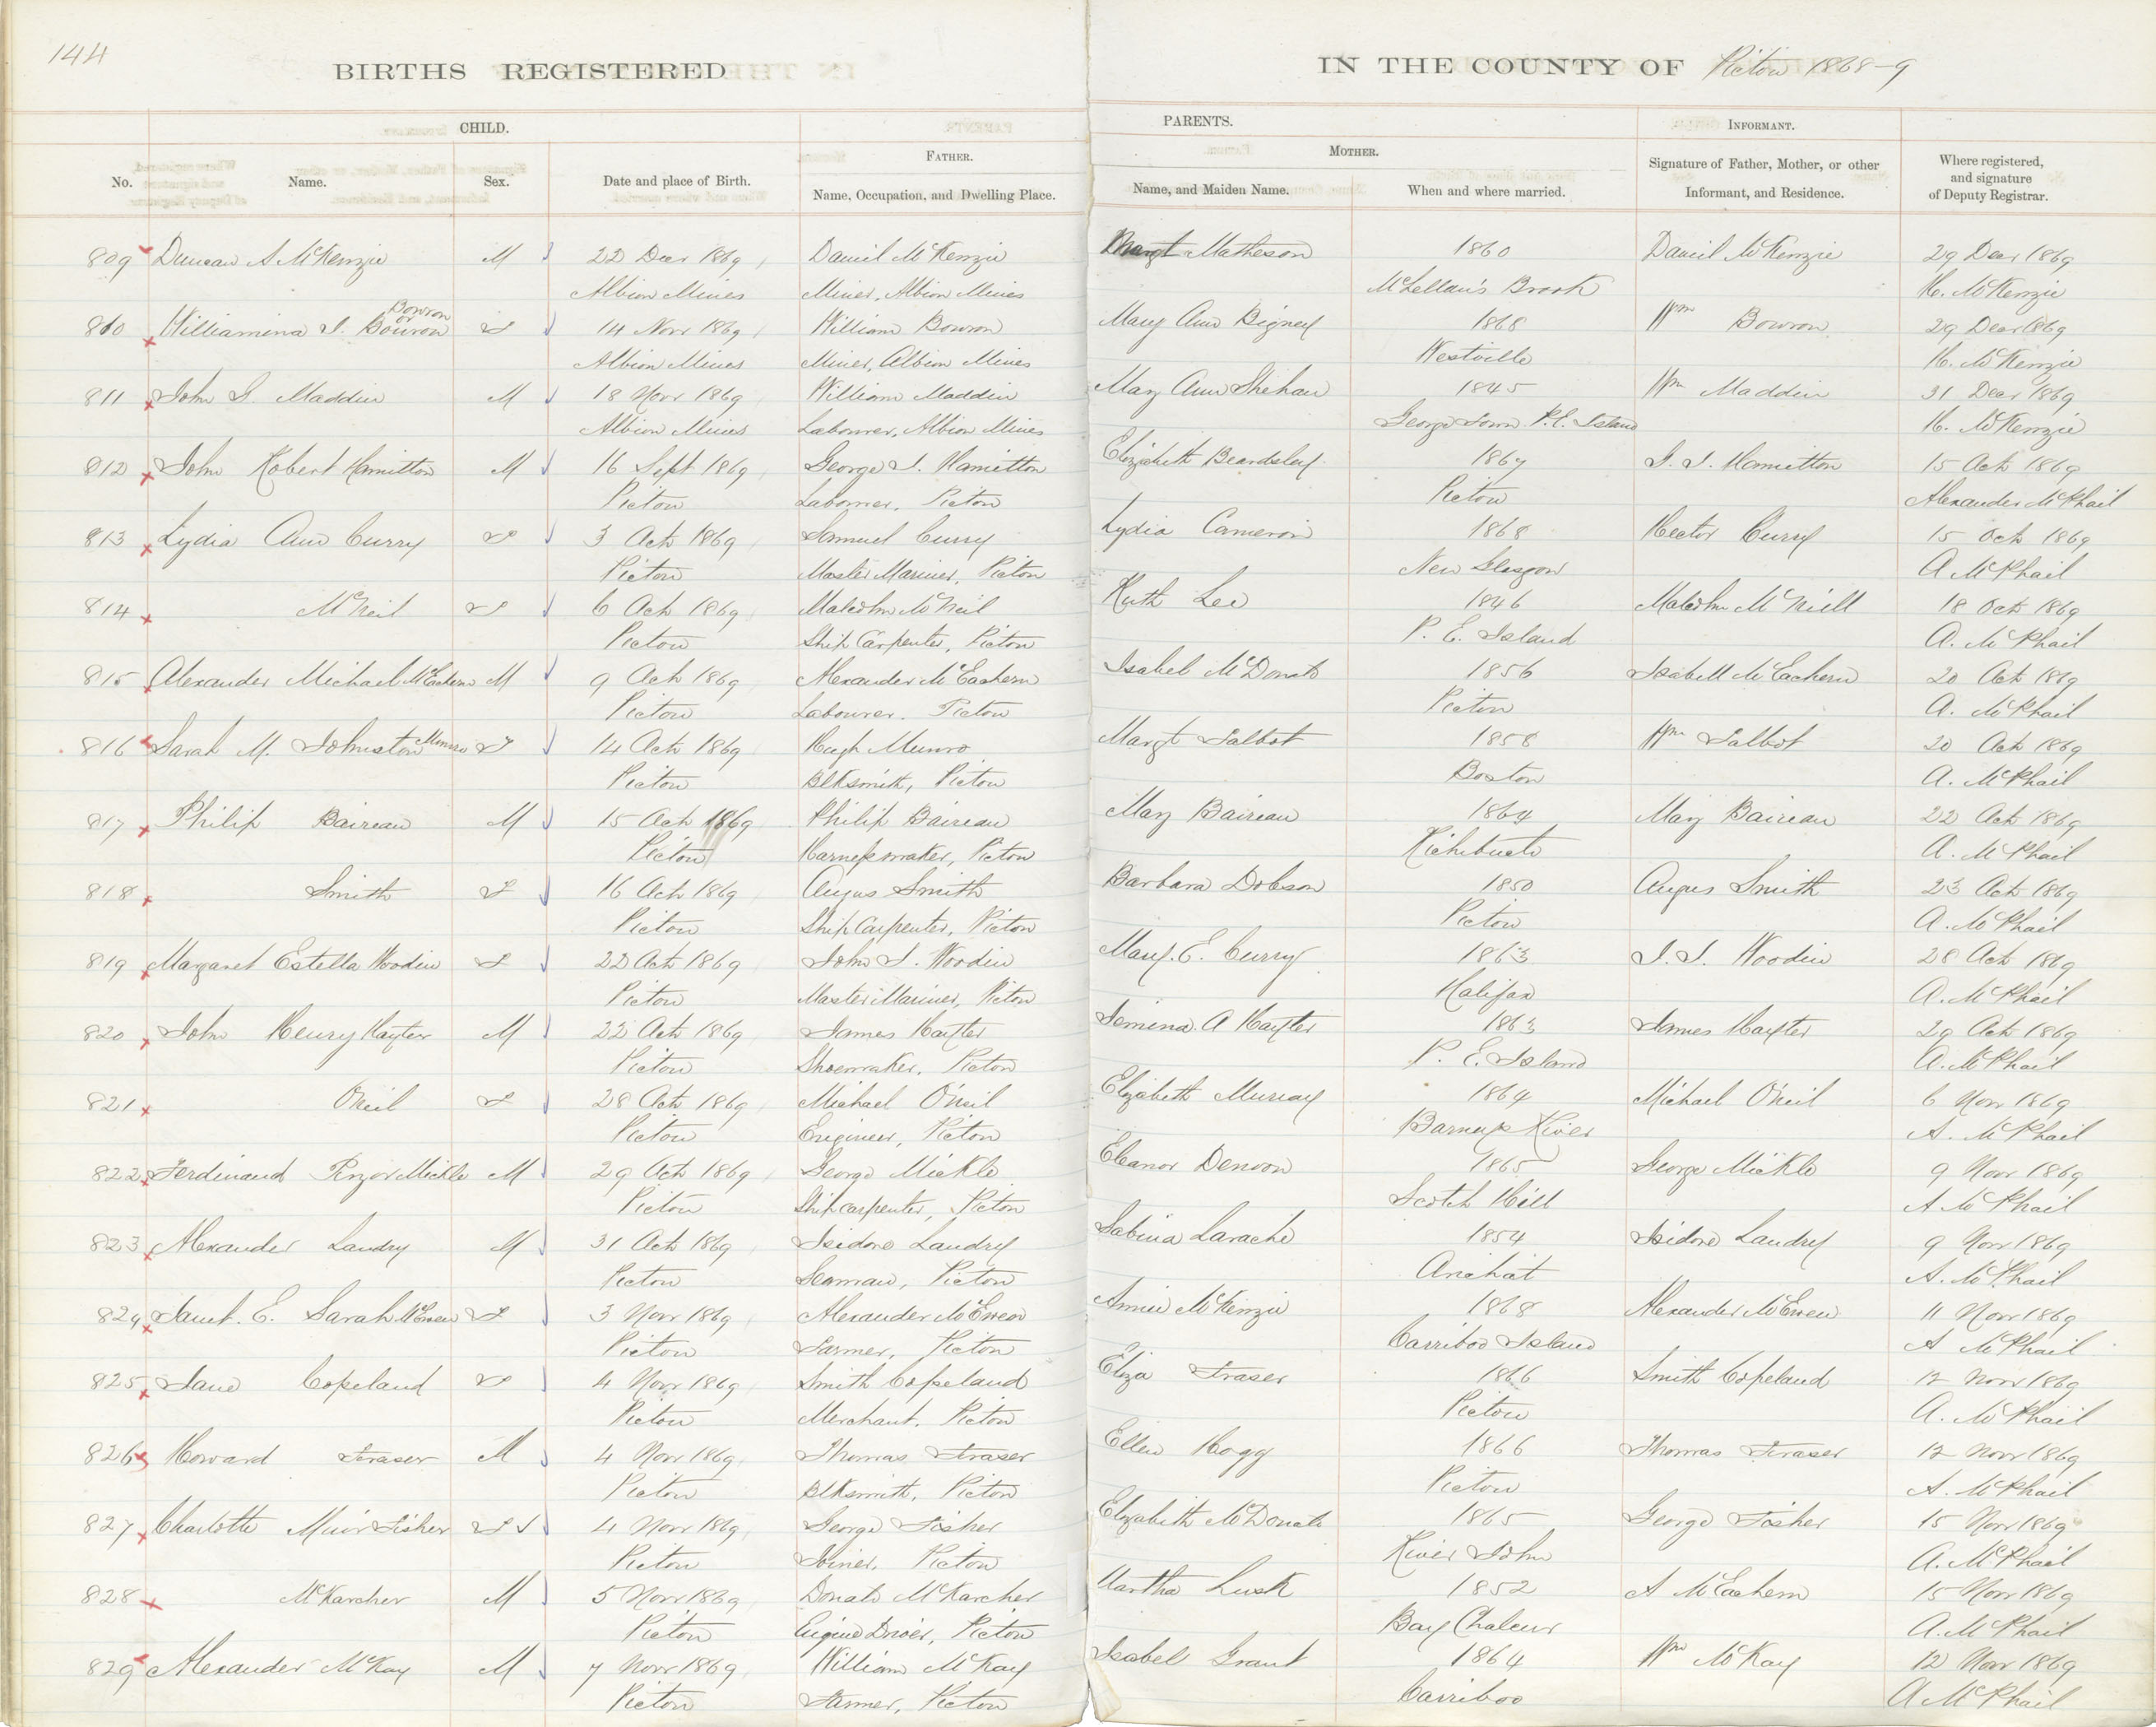 144
BIRTHS REGISTERED IN THE COUNTY OF Pictou 1868-9
CHILD. PARENTS. INFORMANT.
FATHER. MOTHER.
No. Name. Sex. Date and place of Birth. Name, Occupation, and Dwelling Place. Name, and Maiden Name. When and where married. Signature of Father, Mother, or other Informant, and Residence. Where registered, and signature of Deputy Registrar.
809 Duncan A McKenzie M 22 Decr 1869 Daniel McKenzie Margt Matheson 1860 Daniel McKenzie 29 Decr 1869
Albion Mines Miner, Albion Mines McLellan's Brook H. McKenzie
Bowron or
810 Williamina J. Bouron F 14 Novr 1869 William Bowron Mary Ann Bigney 1868 Wm Bowron 29 Decr 1869
Albion Mines Miner, Albion Mines Westville H. McKenzie
811 John J. Maddin M 18 Novr 1869 William Maddin Mary Ann Shehan 1845 Wm Maddin 31 Decr 1869
Albion Mines Labourer, Albion Mines George Town P.E. Island H. McKenzie
812 John Robert Hamilton M 16 Sept 1869 George J. Hamilton Elizabeth Beardsley 1867 G. J. Hamilton 15 Oct 1869
Pictou Labourer, Pictou Pictou Alexander McPhail
813 Lydia Ann Curry F 3 Oct 1869 Samuel Curry Lydia Cameron 1868 Hector Curry 15 Oct 1869
Pictou Master Mariner, Pictou New Glasgow A McPhail
814 McNeil F 6 Oct 1869 Malcolm McNeil Ruth Lee 1846 Malcolm McNeill 18 Oct 1869
Pictou Ship Carpenter, Pictou P. E. Island A. McPhail
815 Alexander Michael McEachern M 9 Oct 1869 Alexander McEachern Isabel McDonald 1856 Isabell McEachern 20 Oct 1869
Pictou Labourer. Pictou Pictou A. McPhail
816 Sarah M. Johnston Munro F 14 Oct 1869 Hugh Munro Margt Talbot 1858 Wm Talbot 20 Oct 1869
Pictou Blksmith, Pictou Boston A. McPhail
817 Philip Baireau M 15 Oct 1869 Philip Baireau Mary Baireau 1864 Mary Baireau 22 Oct 1869
Pictou Harnessmaker, Pictou Richibucto A. McPhail
818 Smith F 16 Oct 1869 Angus Smith Barbara Dobson 1850 Angus Smith 23 Oct 1869
Pictou Ship Carpenter, Pictou Pictou A. McPhail
819 Margaret Estella Woodin F 22 Oct 1869 John J. Woodin Mary. E. Curry 1863 J. J. Woodin 28 Oct 1869
Pictou Master Mariner, Pictou Halifax A. McPhail
820 John Henry Hayter M 22 Oct 1869 James Hayter Jemina. A Hayter 1863 James Hayter 29 Oct 1869
Pictou Shoemaker, Pictou P. E. Island A. McPhail
821 O'Neil F 28 Oct 1869 Michael O'Neil Elizabeth Murray 1864 Michael O'Neil 6 Novr 1869
Pictou Engineer, Pictou Barneys River A. McPhail
822 Ferdinand Mickle M 29 Oct 1869 George Mickle Eleanor Denoon 1865 George Mickle 9 Novr 1869
Pictou Ship carpenter, Pictou Scotch Hill A McPhail
823 Alexander Landry M 31 Oct 1869 Isidore Landry Sabina Larache 1854 Isidore Landry 9 Novr 1869
Pictou Seaman, Pictou Arichat A. McPhail
824 Janet. E. Sarah McEwen F 3 Novr 1869 Alexander McEwen Annie McKenzie 1868 Alexander McEwen 11 Novr 1869
Pictou Farmer, Pictou Carriboo Island A McPhail
825 Jane Copeland F 4 Novr 1869 Smith Copeland Eliza Fraser 1866 Smith Copeland 12 Novr 1869
Pictou Merchant. Pictou Pictou A. McPhail
826 Howard Fraser M 4 Novr 1869 Thomas Fraser Ellen Hogg 1866 Thomas Fraser 12 Novr 1869
Pictou Blksmith, Pictou Pictou A. McPhail
827 Charlotte Muir Fisher F 4 Novr 1869 George Fisher Elizabeth McDonald 1865 George Fisher 15 Novr 1869
Pictou Joiner, Pictou River John A. McPhail
828 McKarcher M 5 Novr 1869 Donald McKarcher Martha Lusk 1852 A McEachern 15 Novr 1869
Pictou Engine Driver, Pictou Bay Chaleur A. McPhail
829 Alexander McKay M 7 Novr 1869 William McKay Isabel Grant 1864 Wm McKay 12 Novr 1869
Pictou Farmer, Pictou Carriboo A McPhail